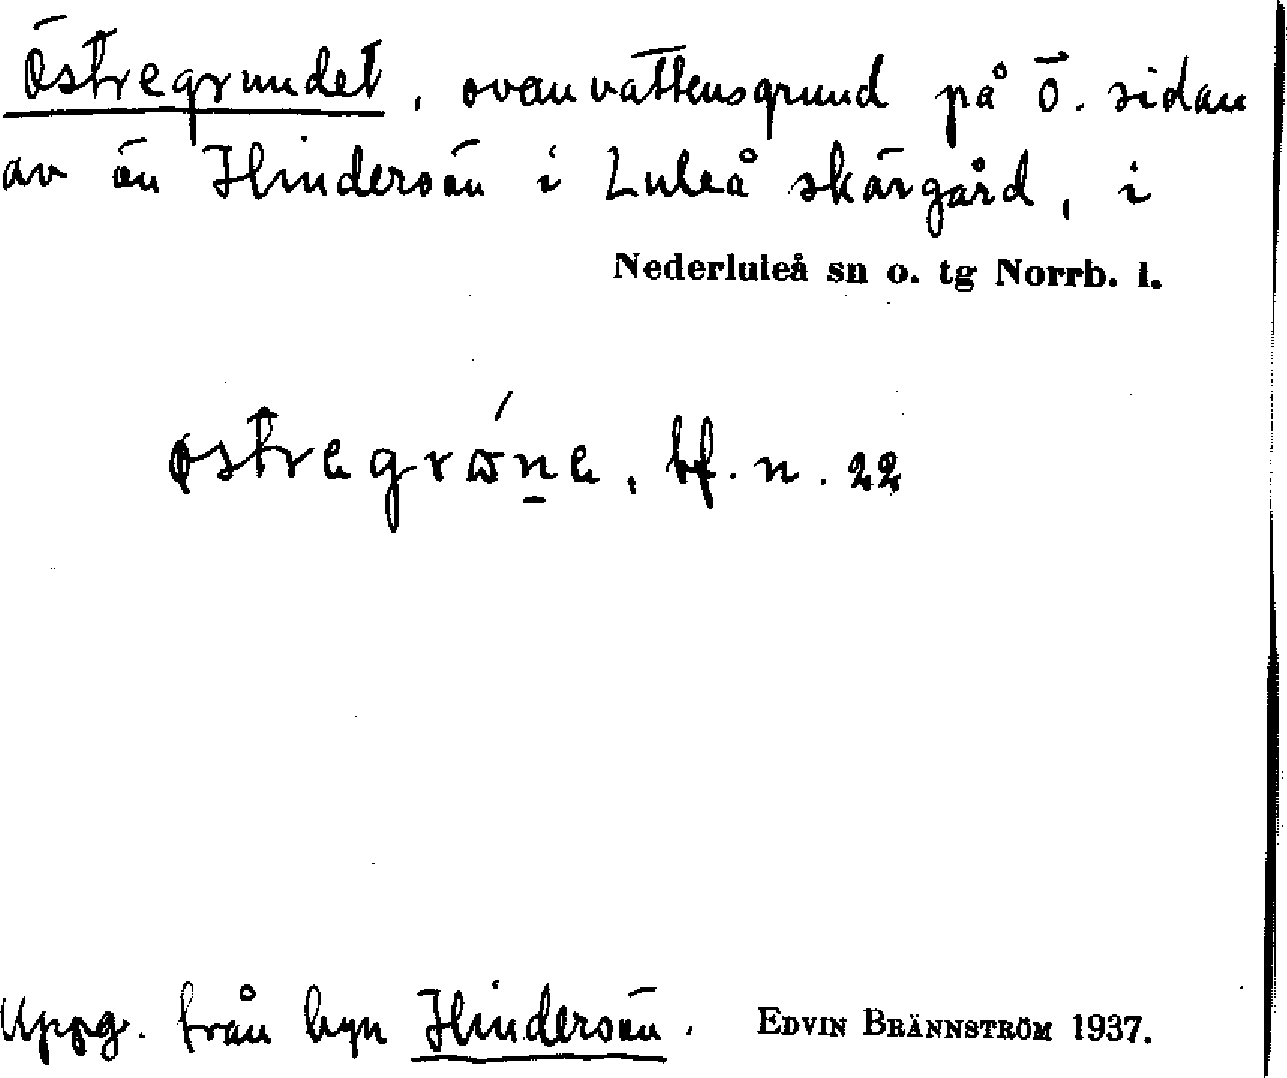 Östregrundet, ovanvattensgrund på ö. sidan
av ön Hindersön i Luleå skärgård, i
Nederluleå sn o. tg Norrb. l.
østregrɷ́n̲e, bf. n. 22
Uppg. från byn Hindersön. EDVIN BRÄNNSTRÖM 1937.